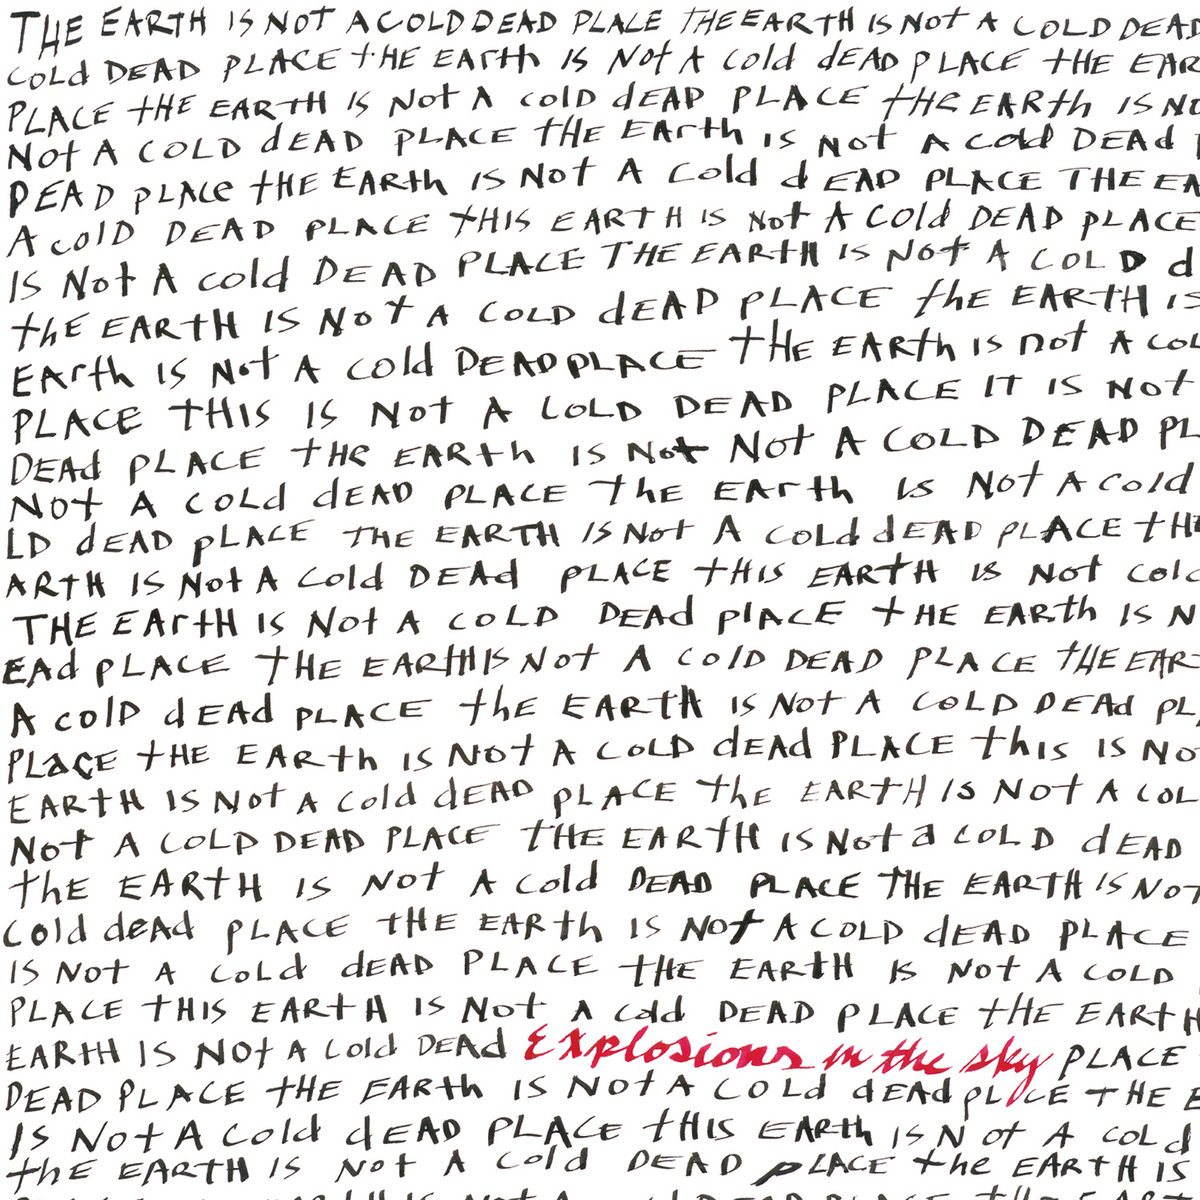 THE EARTH IS NOT A COLD DEAD PLACE THE EARTH IS NOT A COLD DEAD
COLd DEAD PLACE tHE EArth IS Not A Cold dEAD PLACE tHE EAR
PLACE tHE EARTH IS Not A ColD dEAD PLACE tHE EARth IS NO
Not A COLD dEAD PLACE tHE EArth is Not A Cold DEAd
DEAD pLACe tHE EARth IS Not A Cold dEAD PLACE THE EA
A ColD DEAD PLACE tHIS EARTH IS Not A COld DEAD pLACE
IS Not A Cold DEAD PLACE THE EARtH IS Not A COLD d
thE EARtH IS Not A COLD dEAD pLACE the EARtH IS
EArth IS Not A Cold DEAD pLACE tHE EARth IS not A COL
PLACE tHIS IS NOT A COLD DEAD PLACE IT IS NOT
DEAd pLACE tHe EARth IS Not Not A COLD DEAD PL
NOt A COLd dEAD PLACE The EArth is Not A Cold
LD dEAD pLACE THE EARTH IS Not A COLd dEAD pLACE tHE
ARTH IS Not A Cold DEAd pLACE tHIS EARtH is Not Cold
THE EArtH IS Not A COLD DEAd plACE tHE EARth IS N
EAd PLACE tHE EARtH IS Not A ColD DEAD PLACE tHE EAR
A ColD dEAd pLACE thE EARtH IS Not A COLD DEAd pL
PLaCE tHE EARth IS Not A COLD dEAd PLACE this IS No
EARtH IS Not A Cold dEAD pLACE the EARtH IS Not A COL
Not A COLD DEAD PLACE tHE EARtH IS Not a COLD dEAD
thE EARtH IS Not A Cold DEAD PLACE THE EARtH IS Not
Cold deAd pLACE tHE EARth IS Not A COLD dEAD pLACE
IS Not A COLd dEAD PLACE tHE EARtH IS Not A COLD
PLACE tHIS EARtH IS Not A Cold DEAD PLACE tHE EARtH
EARtH IS NOt A Cold DEAD Explosions in the sky pLACE
DEAD PLACE tHE EARth IS Not A COLd dEAd pLACE THE E
IS Not A Cold dEAD PLACE tHIS EARth IS Not A COLd
the EARtH IS Not A Cold DEAD pLACE the EARtH IS